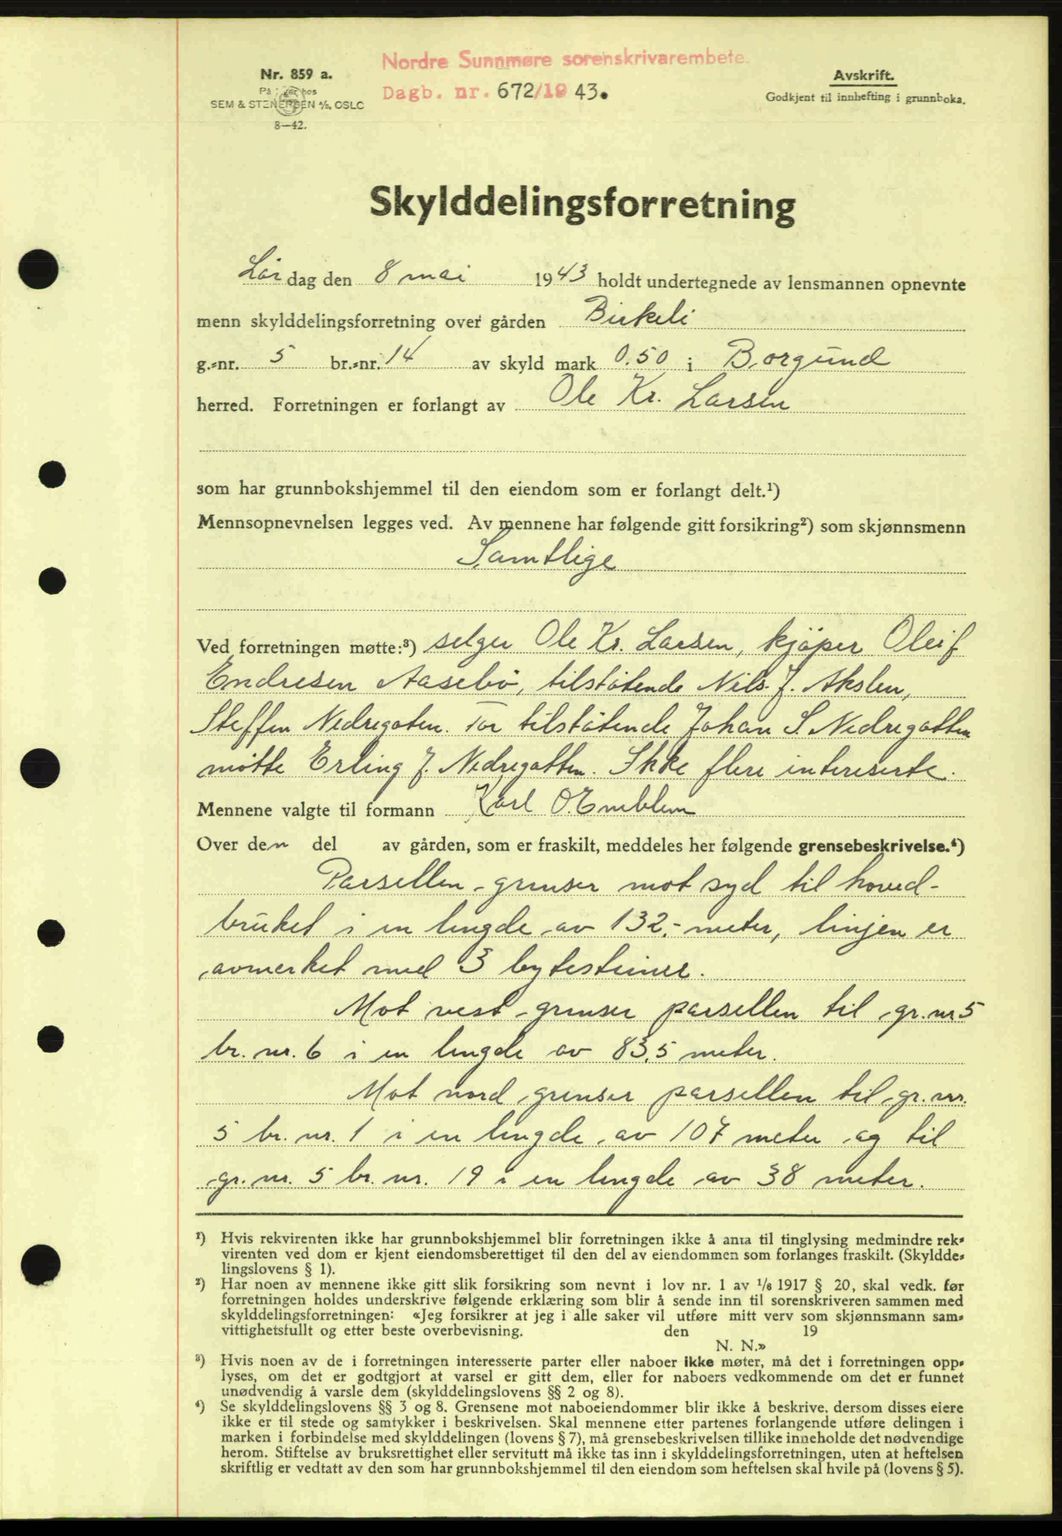 Nordre Sunnmøre sorenskrivarembete
Dagb. nr. 672/1943.
Nr. 859 a.
SEM & STENERSEN A/S, OSLO
8—42.
Avskrift.
Godkjent til innhefting i grunnboka.
Skylddelingsforretning
Lørdag den 8 mai 1943 holdt undertegnede av lensmannen opnevnte
menn skylddelingsforretning over gården Birkeli
g.-nr. 5 br.-nr. 14 av skyld mark 0.50 i Borgund
herred. Forretningen er forlangt av Ole Kr. Larsen
som har grunnbokshjemmel til den eiendom som er forlangt delt.¹)
Mennsopnevnelsen legges ved. Av mennene har følgende gitt forsikring²) som skjønnsmenn
Samtlige
Ved forretningen møtte:³) selger Ole Kr. Larsen, kjøper Oleif
Endresen Aasebø, tilstøtende Nils J. Akslen,
Steffen Nedregoten. For tilstøtende Johan S. Nedregotten
møtte Erling J. Nedregotten. Ikke flere intereserte.
Mennene valgte til formann Karl O. Emblem
Over den del av gården, som er fraskilt, meddeles her følgende grensebeskrivelse.⁴)
Parsellen grenser mot syd til hoved-
bruket i en lengde av 132,- meter, linjen er
avmerket med 3 bytesteiner.
Mot vest grenser parsellen til gr. nr 5
br. nr. 6 i en lengde av 83,5 meter.
Mot nord grenser parsellen til gr. nr.
5 br. nr. 1 i en lengde av 107 meter og til
gr. nr. 5 br. nr. 19 i en lengde av 38 meter.
¹) Hvis rekvirenten ikke har grunnbokshjemmel blir forretningen ikke å anta til tinglysing medmindre rek-
virenten ved dom er kjent eiendomsberettiget til den del av eiendommen som forlanges fraskilt. (Skyldde-
lingslovens § 1).
²) Har noen av mennene ikke gitt slik forsikring som nevnt i lov nr. 1 av 1/6 1917 § 20, skal vedk. før
forretningen holdes underskrive følgende erklæring som blir å sende inn til sorenskriveren sammen med
skylddelingsforretningen: «Jeg forsikrer at jeg i alle saker vil utføre mitt verv som skjønnsmann sam-
vittighetsfullt og etter beste overbevisning. den 19
N. N.»
³) Hvis noen av de i forretningen interesserte parter eller naboer ikke møter, må det i forretningen opp-
lyses, om det er godtgjort at varsel er gitt dem, eller for naboers vedkommende om det er funnet
unødvendig å varsle dem (skylddelingslovens §§ 2 og 8).
⁴) Se skylddelingslovens §§ 3 og 8. Grensene mot naboeiendommer blir ikke å beskrive, dersom disses eiere
ikke er til stede og samtykker i beskrivelsen. Skal mennene etter partenes forlangende utføre delingen i
marken i forbindelse med skylddelingen (lovens § 7), må grensebeskrivelsen tillike inneholde det nødvendige
herom. Stiftelse av bruksrettighet eller servitutt må ikke tas inn i skylddelingsforretningen, uten at heftelsen
skriftlig er vedtatt av den som har grunnbokshjemmel til den eiendom som heftelsen skal hvile på (lovens § 5).